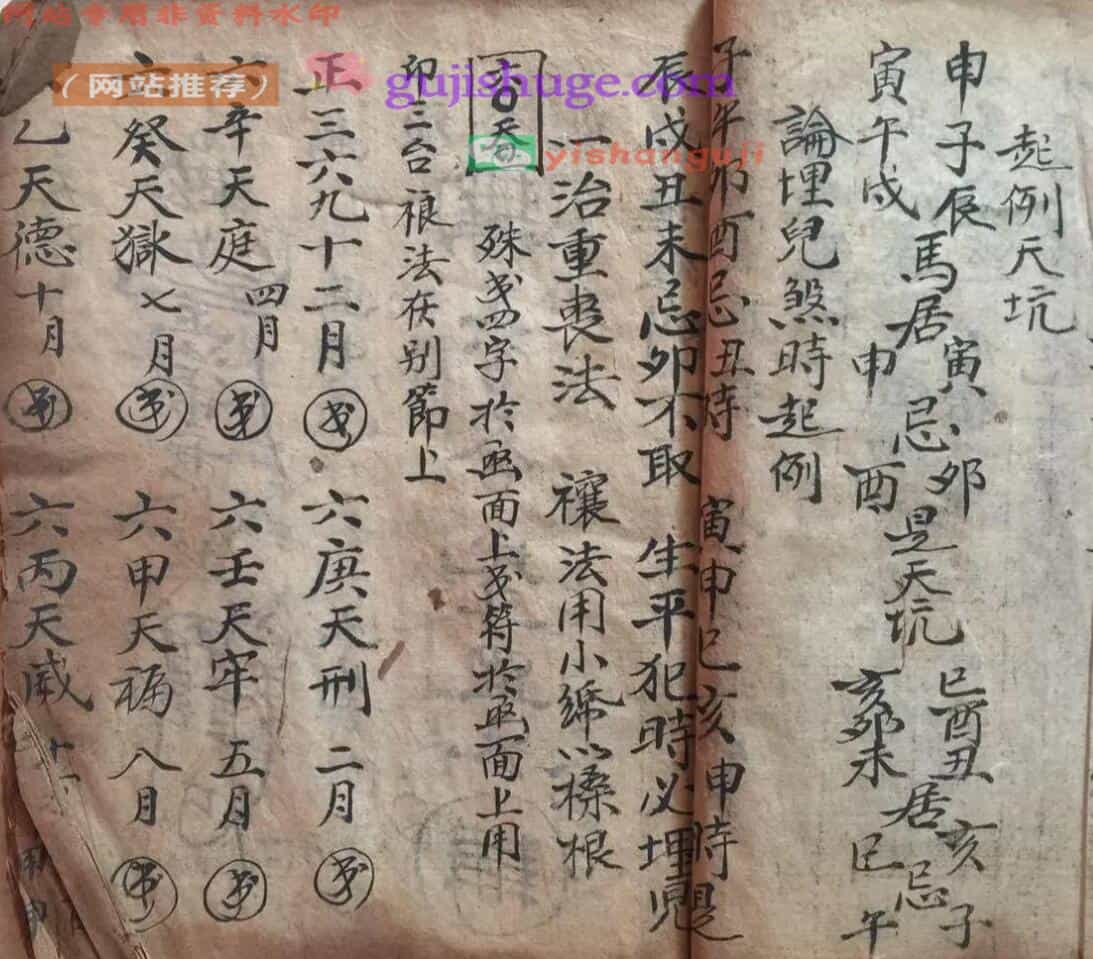 起例天坑
申子辰 寅午戌 馬居 寅 申 忌 卯 酉 是天坑 巳酉丑 亥卯未 居 亥 巳 忌 子 午
論埋兒煞時起例
子午卯酉忌丑時 寅申巳亥申時是
辰戌丑未忌卯不取 生平犯時必埋兒
一治重喪法 禳法用小 以 根
殊 四字於 面上 符於 面上用
印二台 法在别節上
正三六九十二月 六庚天刑 二月
六辛天庭 四月 六壬天牢 五月
六癸天獄 七月 六甲天福 八月
六乙天德 十月 六丙天威 十一
网站专用非资料水印
(网站推荐)
gujishuge.com
yishanguji